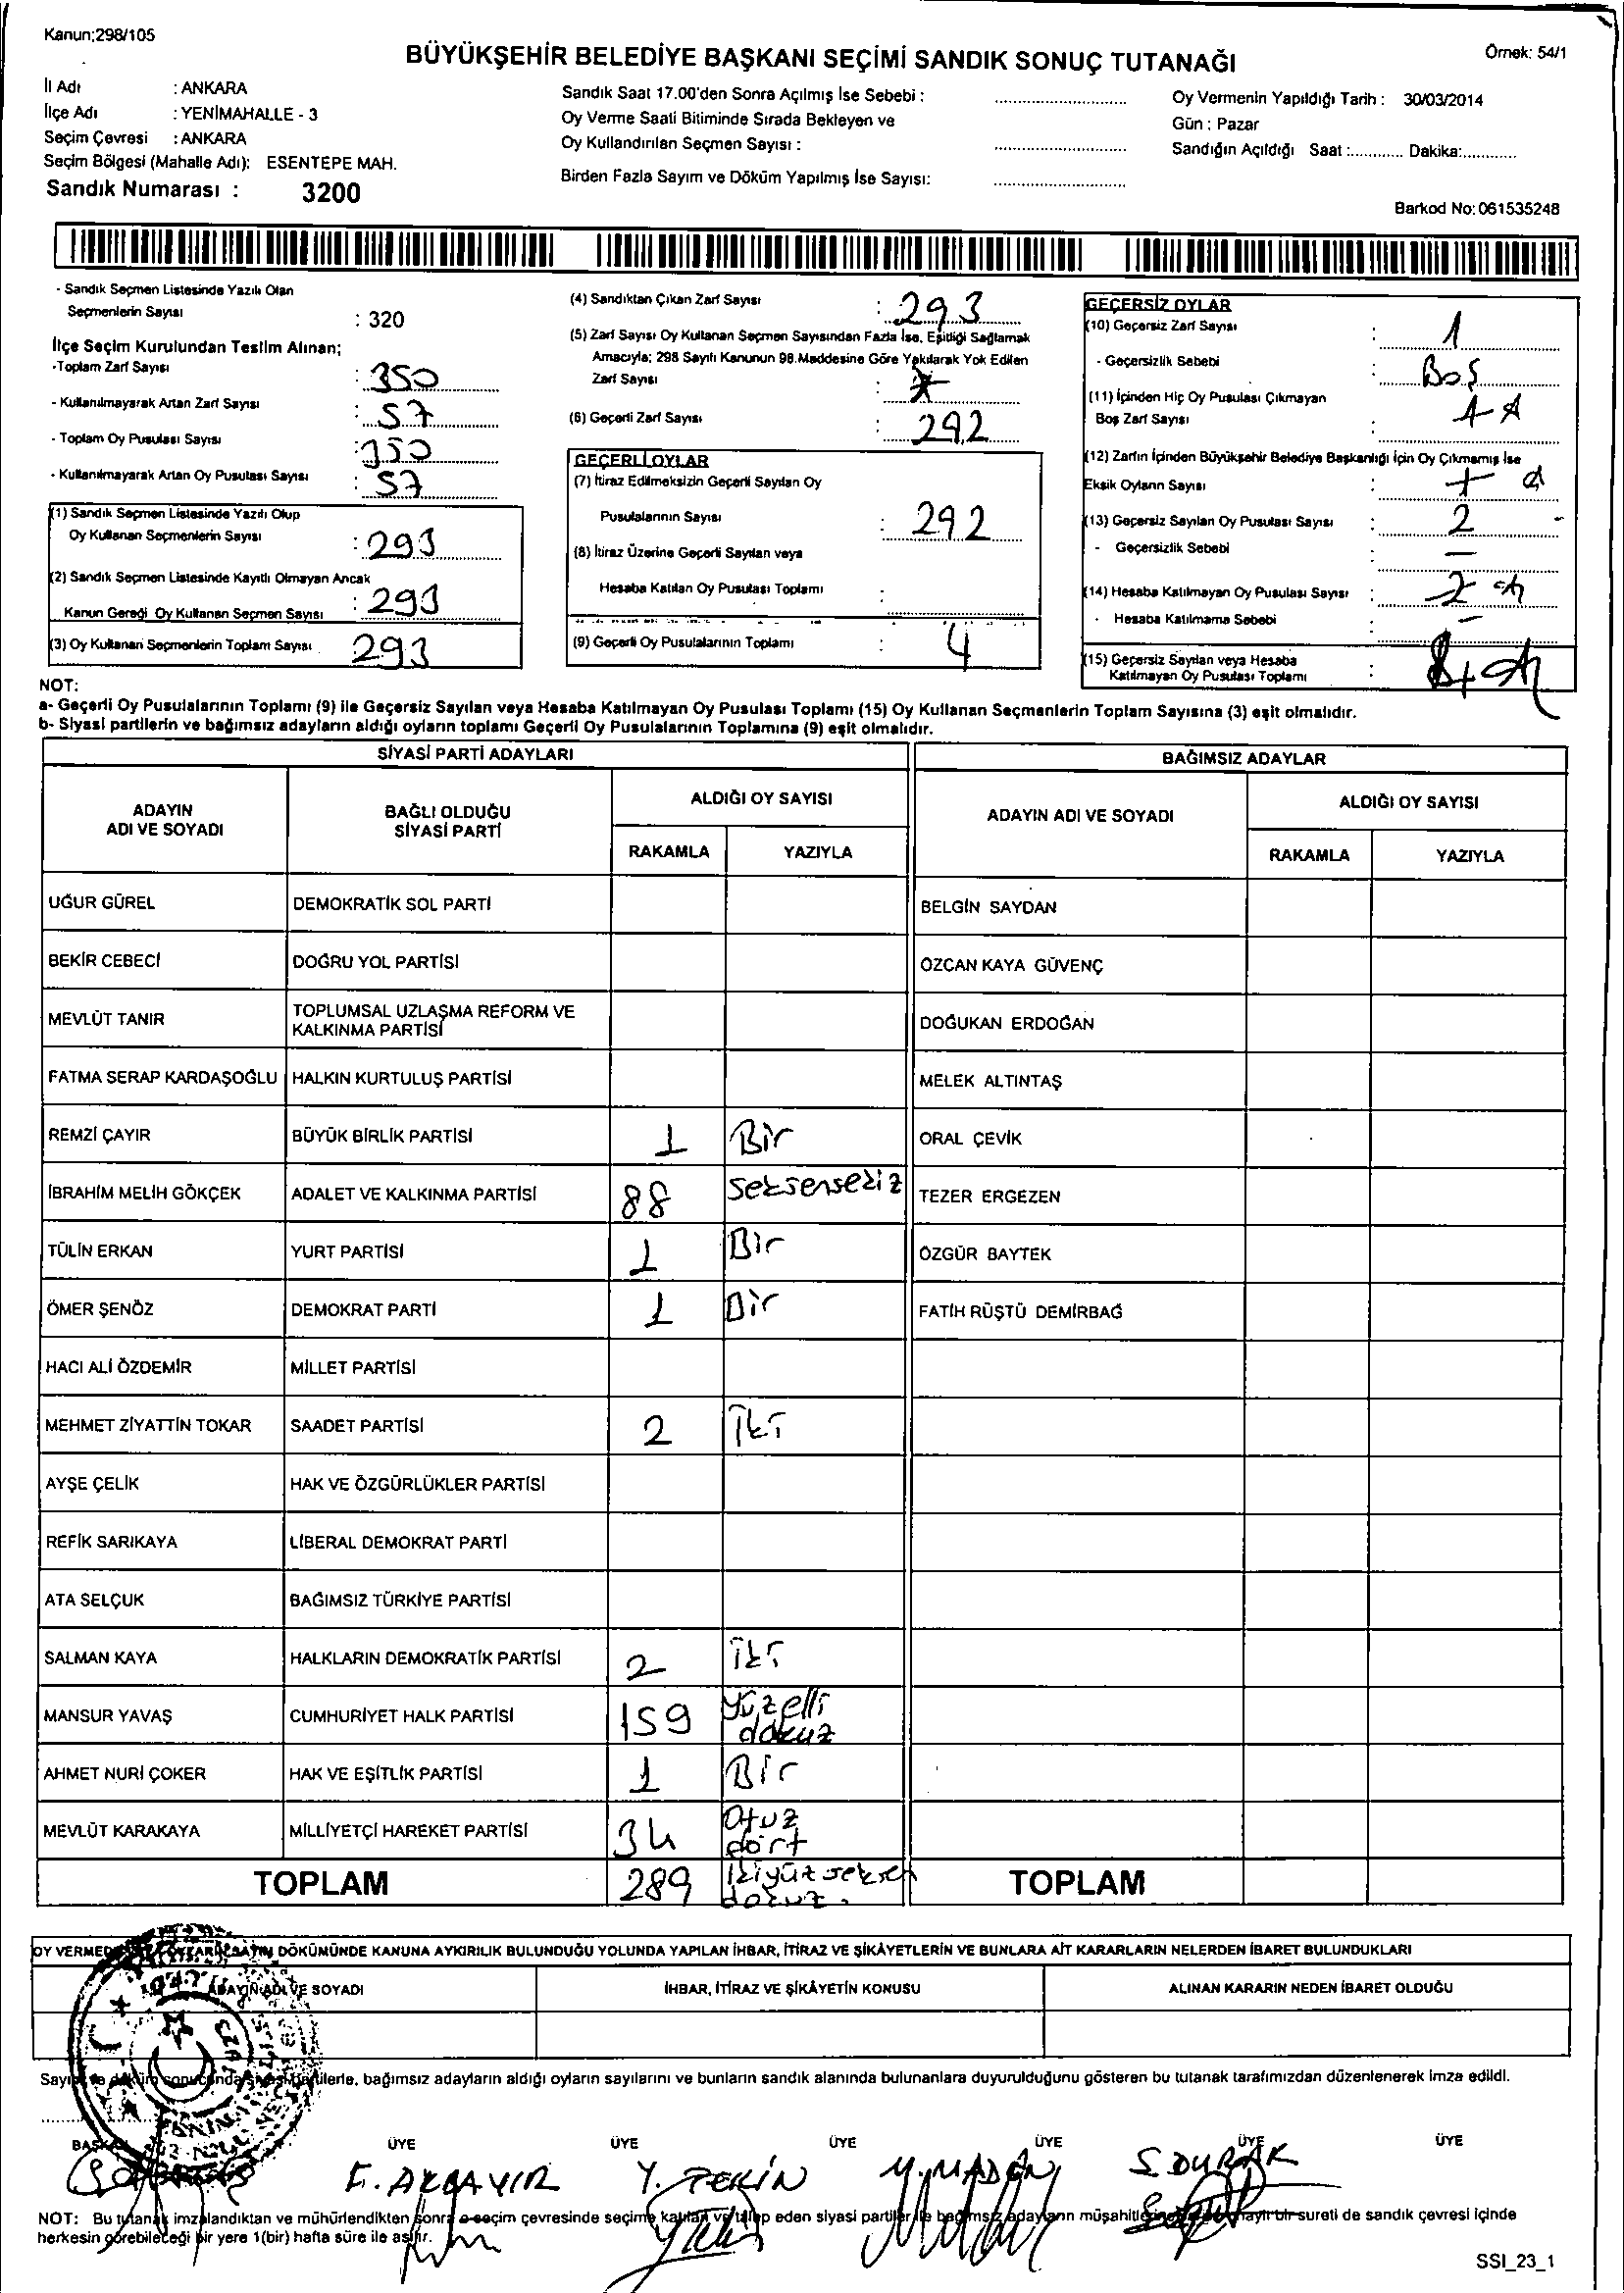 Kanun;298/105
BÜYÜKŞEHİR BELEDİYE BAŞKANI SEÇİMİ SANDIK SONUÇ TUTANAĞI
Örnek: 54/1
İl Adı : ANKARA
İlçe Adı : YENİMAHALLE - 3
Seçim Çevresi : ANKARA
Seçim Bölgesi (Mahalle Adı): ESENTEPE MAH.
Sandık Numarası : 3200
Sandık Saat 17.00'den Sonra Açılmış İse Sebebi :
Oy Verme Saati Bitiminde Sırada Bekleyen ve
Oy Kullandırılan Seçmen Sayısı :
Birden Fazla Sayım ve Döküm Yapılmış İse Sayısı:
Oy Vermenin Yapıldığı Tarih : 30/03/2014
Gün : Pazar
Sandığın Açıldığı Saat :............ Dakika:............
Barkod No: 061535248
- Sandık Seçmen Listesinde Yazılı Olan
Seçmenlerin Sayısı : 320
İlçe Seçim Kurulundan Teslim Alınan;
-Toplam Zarf Sayısı : 350
- Kullanılmayarak Artan Zarf Sayısı : 57
- Toplam Oy Pusulası Sayısı : 350
- Kullanılmayarak Artan Oy Pusulası Sayısı : 57
(1) Sandık Seçmen Listesinde Yazılı Olup
Oy Kullanan Seçmenlerin Sayısı : 293
(2) Sandık Seçmen Listesinde Kayıtlı Olmayan Ancak
Kanun Gereği Oy Kullanan Seçmen Sayısı : 293
(3) Oy Kullanan Seçmenlerin Toplam Sayısı 293
(4) Sandıktan Çıkan Zarf Sayısı : 293
(5) Zarf Sayısı Oy Kullanan Seçmen Sayısından Fazla İse, Eşitliği Sağlamak
Amacıyla; 298 Sayılı Kanunun 98.Maddesine Göre Yakılarak Yok Edilen
Zarf Sayısı :
(6) Geçerli Zarf Sayısı : 292
GEÇERLİ OYLAR
(7) İtiraz Edilmeksizin Geçerli Sayılan Oy
Pusulalarının Sayısı : 292
(8) İtiraz Üzerine Geçerli Sayılan veya
Hesaba Katılan Oy Pusulası Toplamı :
(9) Geçerli Oy Pusulalarının Toplamı : 4
GEÇERSİZ OYLAR
(10) Geçersiz Zarf Sayısı : 1
- Geçersizlik Sebebi : Boş
(11) İçinden Hiç Oy Pusulası Çıkmayan
Boş Zarf Sayısı :
(12) Zarfın İçinden Büyükşehir Belediye Başkanlığı İçin Oy Çıkmamış İse
Eksik Oyların Sayısı :
(13) Geçersiz Sayılan Oy Pusulası Sayısı : 2
- Geçersizlik Sebebi : —
(14) Hesaba Katılmayan Oy Pusulası Sayısı : 2
- Hesaba Katılmama Sebebi : —
(15) Geçersiz Sayılan veya Hesaba
Katılmayan Oy Pusulası Toplamı :
NOT:
a- Geçerli Oy Pusulalarının Toplamı (9) ile Geçersiz Sayılan veya Hesaba Katılmayan Oy Pusulası Toplamı (15) Oy Kullanan Seçmenlerin Toplam Sayısına (3) eşit olmalıdır.
b- Siyasi partilerin ve bağımsız adayların aldığı oyların toplamı Geçerli Oy Pusulalarının Toplamına (9) eşit olmalıdır.
SİYASİ PARTİ ADAYLARI
BAĞIMSIZ ADAYLAR
ADAYIN ADI VE SOYADI
BAĞLI OLDUĞU SİYASİ PARTİ
ALDIĞI OY SAYISI
RAKAMLA YAZIYLA
ADAYIN ADI VE SOYADI
ALDIĞI OY SAYISI
RAKAMLA YAZIYLA
UĞUR GÜREL DEMOKRATİK SOL PARTİ BELGİN SAYDAN
BEKİR CEBECİ DOĞRU YOL PARTİSİ ÖZCAN KAYA GÜVENÇ
MEVLÜT TANIR TOPLUMSAL UZLAŞMA REFORM VE KALKINMA PARTİSİ DOĞUKAN ERDOĞAN
FATMA SERAP KARDAŞOĞLU HALKIN KURTULUŞ PARTİSİ MELEK ALTINTAŞ
REMZİ ÇAYIR BÜYÜK BİRLİK PARTİSİ 1 Bir ORAL ÇEVİK
İBRAHİM MELİH GÖKÇEK ADALET VE KALKINMA PARTİSİ 88 seksensekiz TEZER ERGEZEN
TÜLİN ERKAN YURT PARTİSİ 1 Bir ÖZGÜR BAYTEK
ÖMER ŞENÖZ DEMOKRAT PARTİ 1 Bir FATİH RÜŞTÜ DEMİRBAĞ
HACI ALİ ÖZDEMİR MİLLET PARTİSİ
MEHMET ZİYATTİN TOKAR SAADET PARTİSİ 2 İki
AYŞE ÇELİK HAK VE ÖZGÜRLÜKLER PARTİSİ
REFİK SARIKAYA LİBERAL DEMOKRAT PARTİ
ATA SELÇUK BAĞIMSIZ TÜRKİYE PARTİSİ
SALMAN KAYA HALKLARIN DEMOKRATİK PARTİSİ 2 iki
MANSUR YAVAŞ CUMHURİYET HALK PARTİSİ 159 Yüzelli dokuz
AHMET NURİ ÇOKER HAK VE EŞİTLİK PARTİSİ 1 Bir
MEVLÜT KARAKAYA MİLLİYETÇİ HAREKET PARTİSİ 34 Otuz dört
TOPLAM 289 ikiyüz seksen dokuz. TOPLAM
DÖKÜMÜNDE KANUNA AYKIRILIK BULUNDUĞU YOLUNDA YAPILAN İHBAR, İTİRAZ VE ŞİKÂYETLERİN VE BUNLARA AİT KARARLARIN NELERDEN İBARET BULUNDUKLARI
ADAYIN ADI VE SOYADI İHBAR, İTİRAZ VE ŞİKÂYETİN KONUSU ALINAN KARARIN NEDEN İBARET OLDUĞU
bağımsız adayların aldığı oyların sayılarını ve bunların sandık alanında bulunanlara duyurulduğunu gösteren bu tutanak tarafımızdan düzenlenerek imza edildi.
BAŞKAN ÜYE ÜYE ÜYE ÜYE ÜYE ÜYE
E. AKBAYIR Y. TEKİN M. MADEN S. DURAK
NOT: Bu tutanak imzalandıktan ve mühürlendikten sonra o seçim çevresinde seçime katılan ve talep eden siyasi partiler ile bağımsız adayların müşahitlerine sureti de sandık çevresi içinde
herkesin görebileceği bir yere 1(bir) hafta süre ile asılır.
SSI_23_1